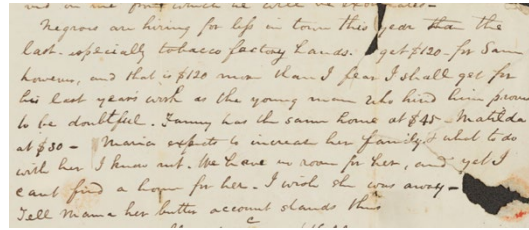 Negroes are hiring for less in town this year than the
last. especially tobacco factory hands. I get $120- for Sam
however, and that is $120 more than I fear I shall get for
his last year's work as the young man who hired him proves
to be doubtful. Fanny has the same home at $45- Matilda
at $30- Maria expects to increase her family & what to do
with her I know not. We have no room for her, and yet I
cant find a home for her. I wish she was away-
Tell Mama her butter account stands thus